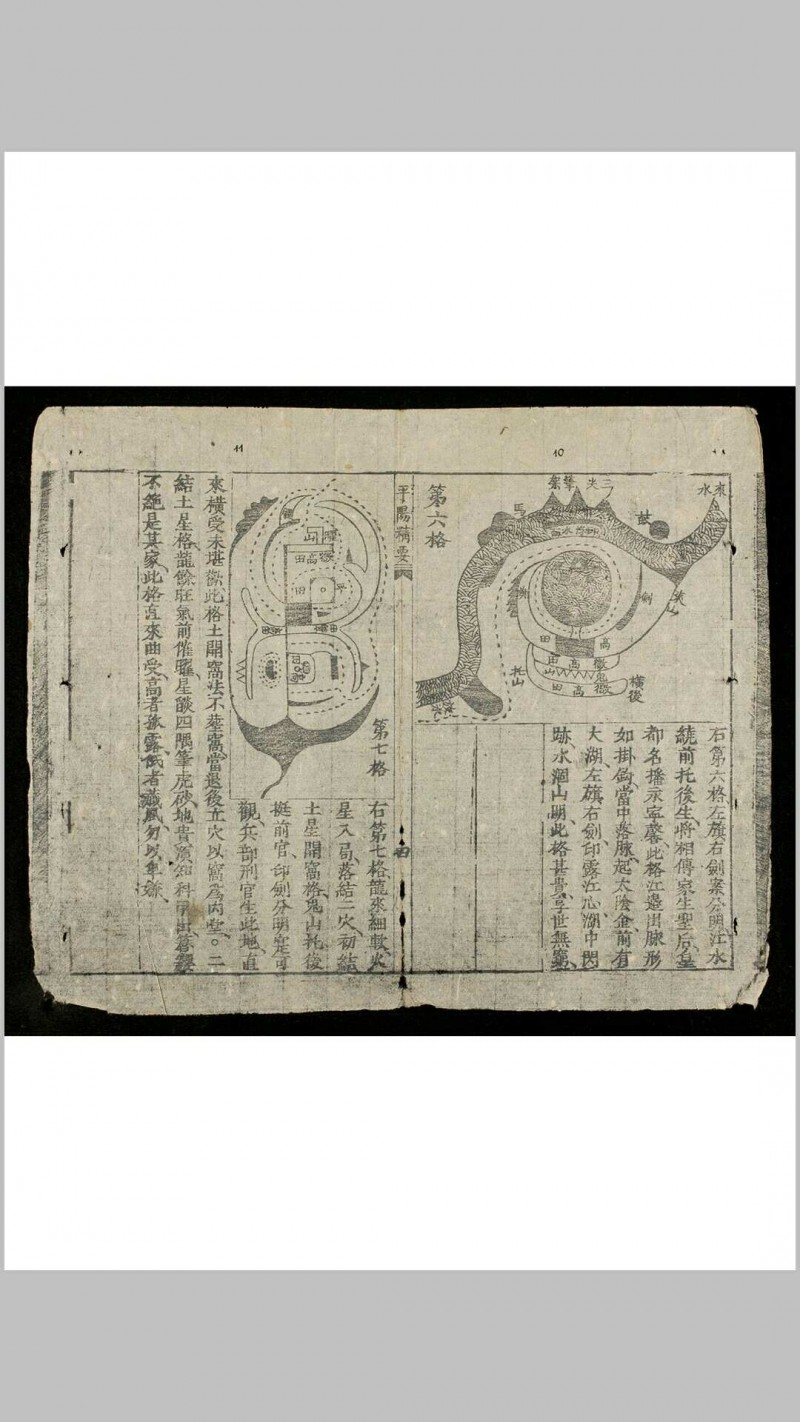 11
10
第六格
來水
三尖筆案
馬
鼓
劍
高
田
高
托山
橫後
高田
右第六格左旗右劍案分明江水
繞前托後生將相傳家生聖后皇
都名播永寧馨此格江邊出脉形
如掛鈎當中落脉起太陰金前有
大湖左旗右劍印露江心湖中閃
跡水涸山明此格甚貴享世無窮
平陽精要
第七格
高田
平
田
右第七格龍來細軟火
星入局落結二穴初結
土星開窩格鬼山托後
挺前官印劍分明定可
觀兵部刑官生此地直
來橫受未堪歡此格土開窩法不葬窩當退後立穴以窩為內堂。二
結土星格龍餘旺氣前催曜星燄四隅筆虎砂地貴須知科甲出簪纓
不絕是其家此格直來曲受高者孤露低者藏風勿以卑嫌